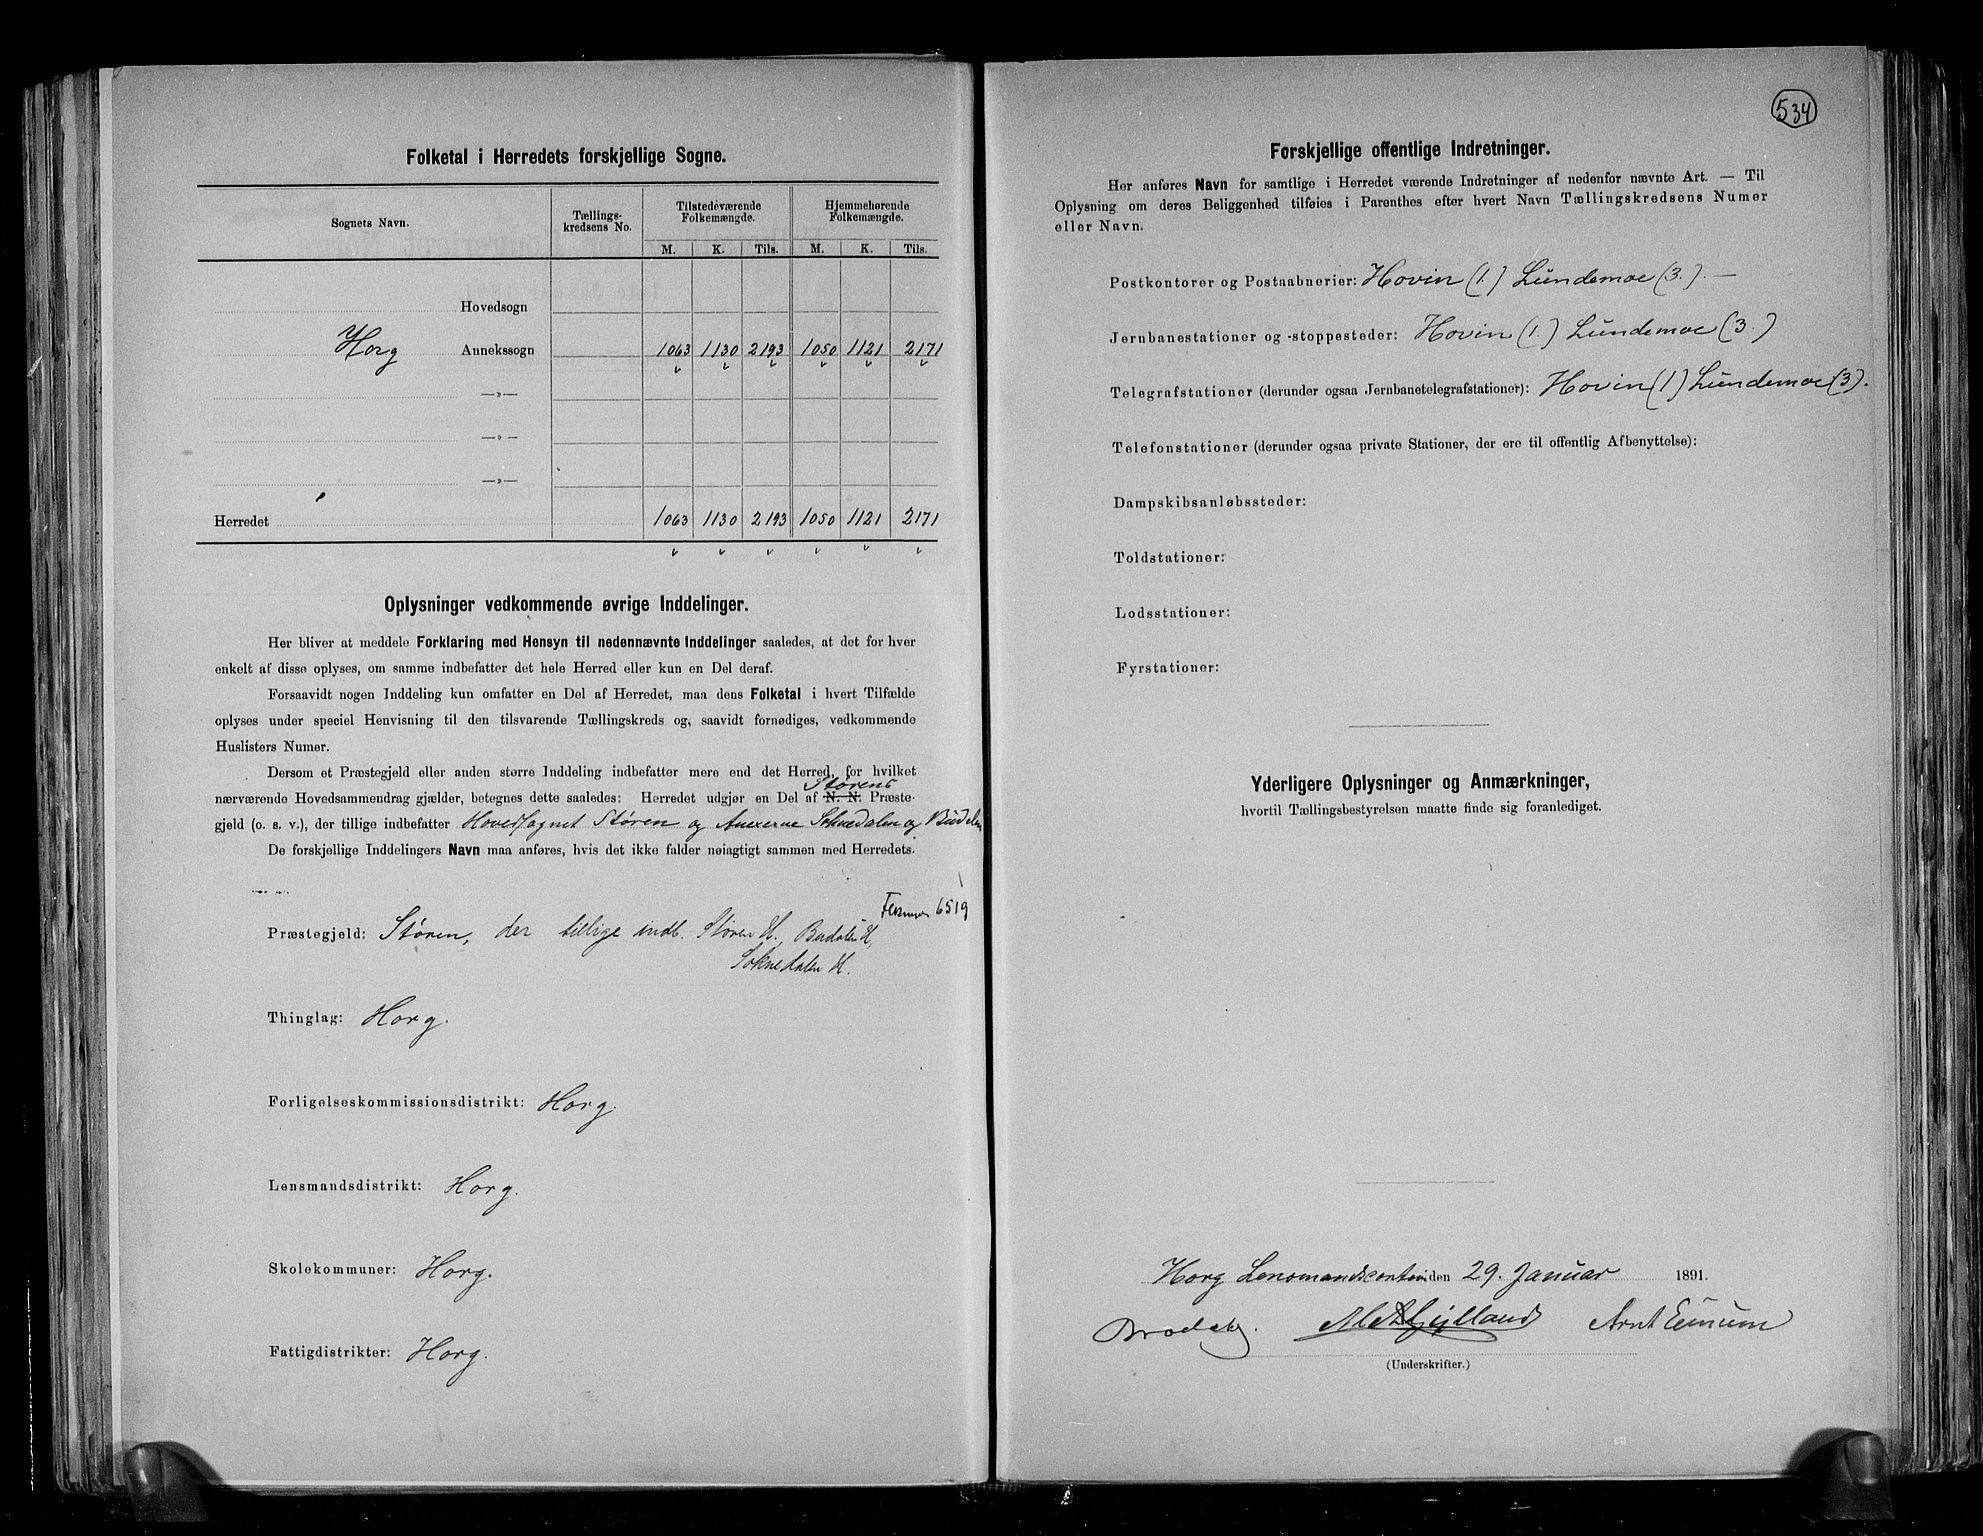 Folketal i Herredets forskjellige Sogne.
Sognets Navn. Tællings-kredsens No. Tilstedeværende Folkemængde. Hjemmehørende Folkemængde.
M. K. Tils. M. K. Tils.
Hovedsogn
Horg Annekssogn 1063 1130 2193 1050 1121 2171
—»—
—»—
—»—
Herredet 1063 1130 2193 1050 1121 2171
Oplysninger vedkommende øvrige Inddelinger.
Her bliver at meddele Forklaring med Hensyn til nedennævnte Inddelinger saaledes, at det for hver
enkelt af disse oplyses, om samme indbefatter det hele Herred eller kun en Del deraf.
Forsaavidt nogen Inddeling kun omfatter en Del af Herredet, maa dens Folketal i hvert Tilfælde
oplyses under speciel Henvisning til den tilsvarende Tællingskreds og, saavidt fornødiges, vedkommende
Huslisters Numer.
Dersom et Præstegjeld eller anden større Inddeling indbefatter mere end det Herred, for hvilket
Størens
nærværende Hovedsammendrag gjælder, betegnes dette saaledes: Herredet udgjør en Del af N. N. Præste-
gjeld (o. s. v.), der tillige indbefatter Hovedsognet Støren og Anexerne Soknedalen og Budalen
De forskjellige Inddelingers Navn maa anføres, hvis det ikke falder nøiagtigt sammen med Herredets.
6519
Præstegjeld: Støren, der tillige indb. Støren H., Budalen H,
Soknedalen H.
Thinglag: Horg.
Forligelseskommissionsdistrikt: Horg.
Lensmandsdistrikt: Horg.
Skolekommuner: Horg.
Fattigdistrikter: Horg.
534
Forskjellige offentlige Indretninger.
Her anføres Navn for samtlige i Herredet værende Indretninger af nedenfor nævnte Art. — Til
Oplysning om deres Beliggenhed tilføies i Parenthes efter hvert Navn Tællingskredsens Numer
eller Navn.
Postkontorer og Postaabnerier: Hovin (1.) Lundemoe (3.). —
Jernbanestationer og -stoppesteder: Hovin (1.) Lundemoe (3.)
Telegrafstationer (derunder ogsaa Jernbanetelegrafstationer): Hovin (1) Lundemoe (3).
Telefonstationer (derunder ogsaa private Stationer, der ere til offentlig Afbenyttelse):
Dampskibsanløbssteder:
Toldstationer:
Lodsstationer:
Fyrstationer:
Yderligere Oplysninger og Anmærkninger,
hvortil Tællingsbestyrelsen maatte finde sig foranlediget.
Horg Lensmandscontor den 29. Januar 1891.
Arnt
(Underskrifter.)